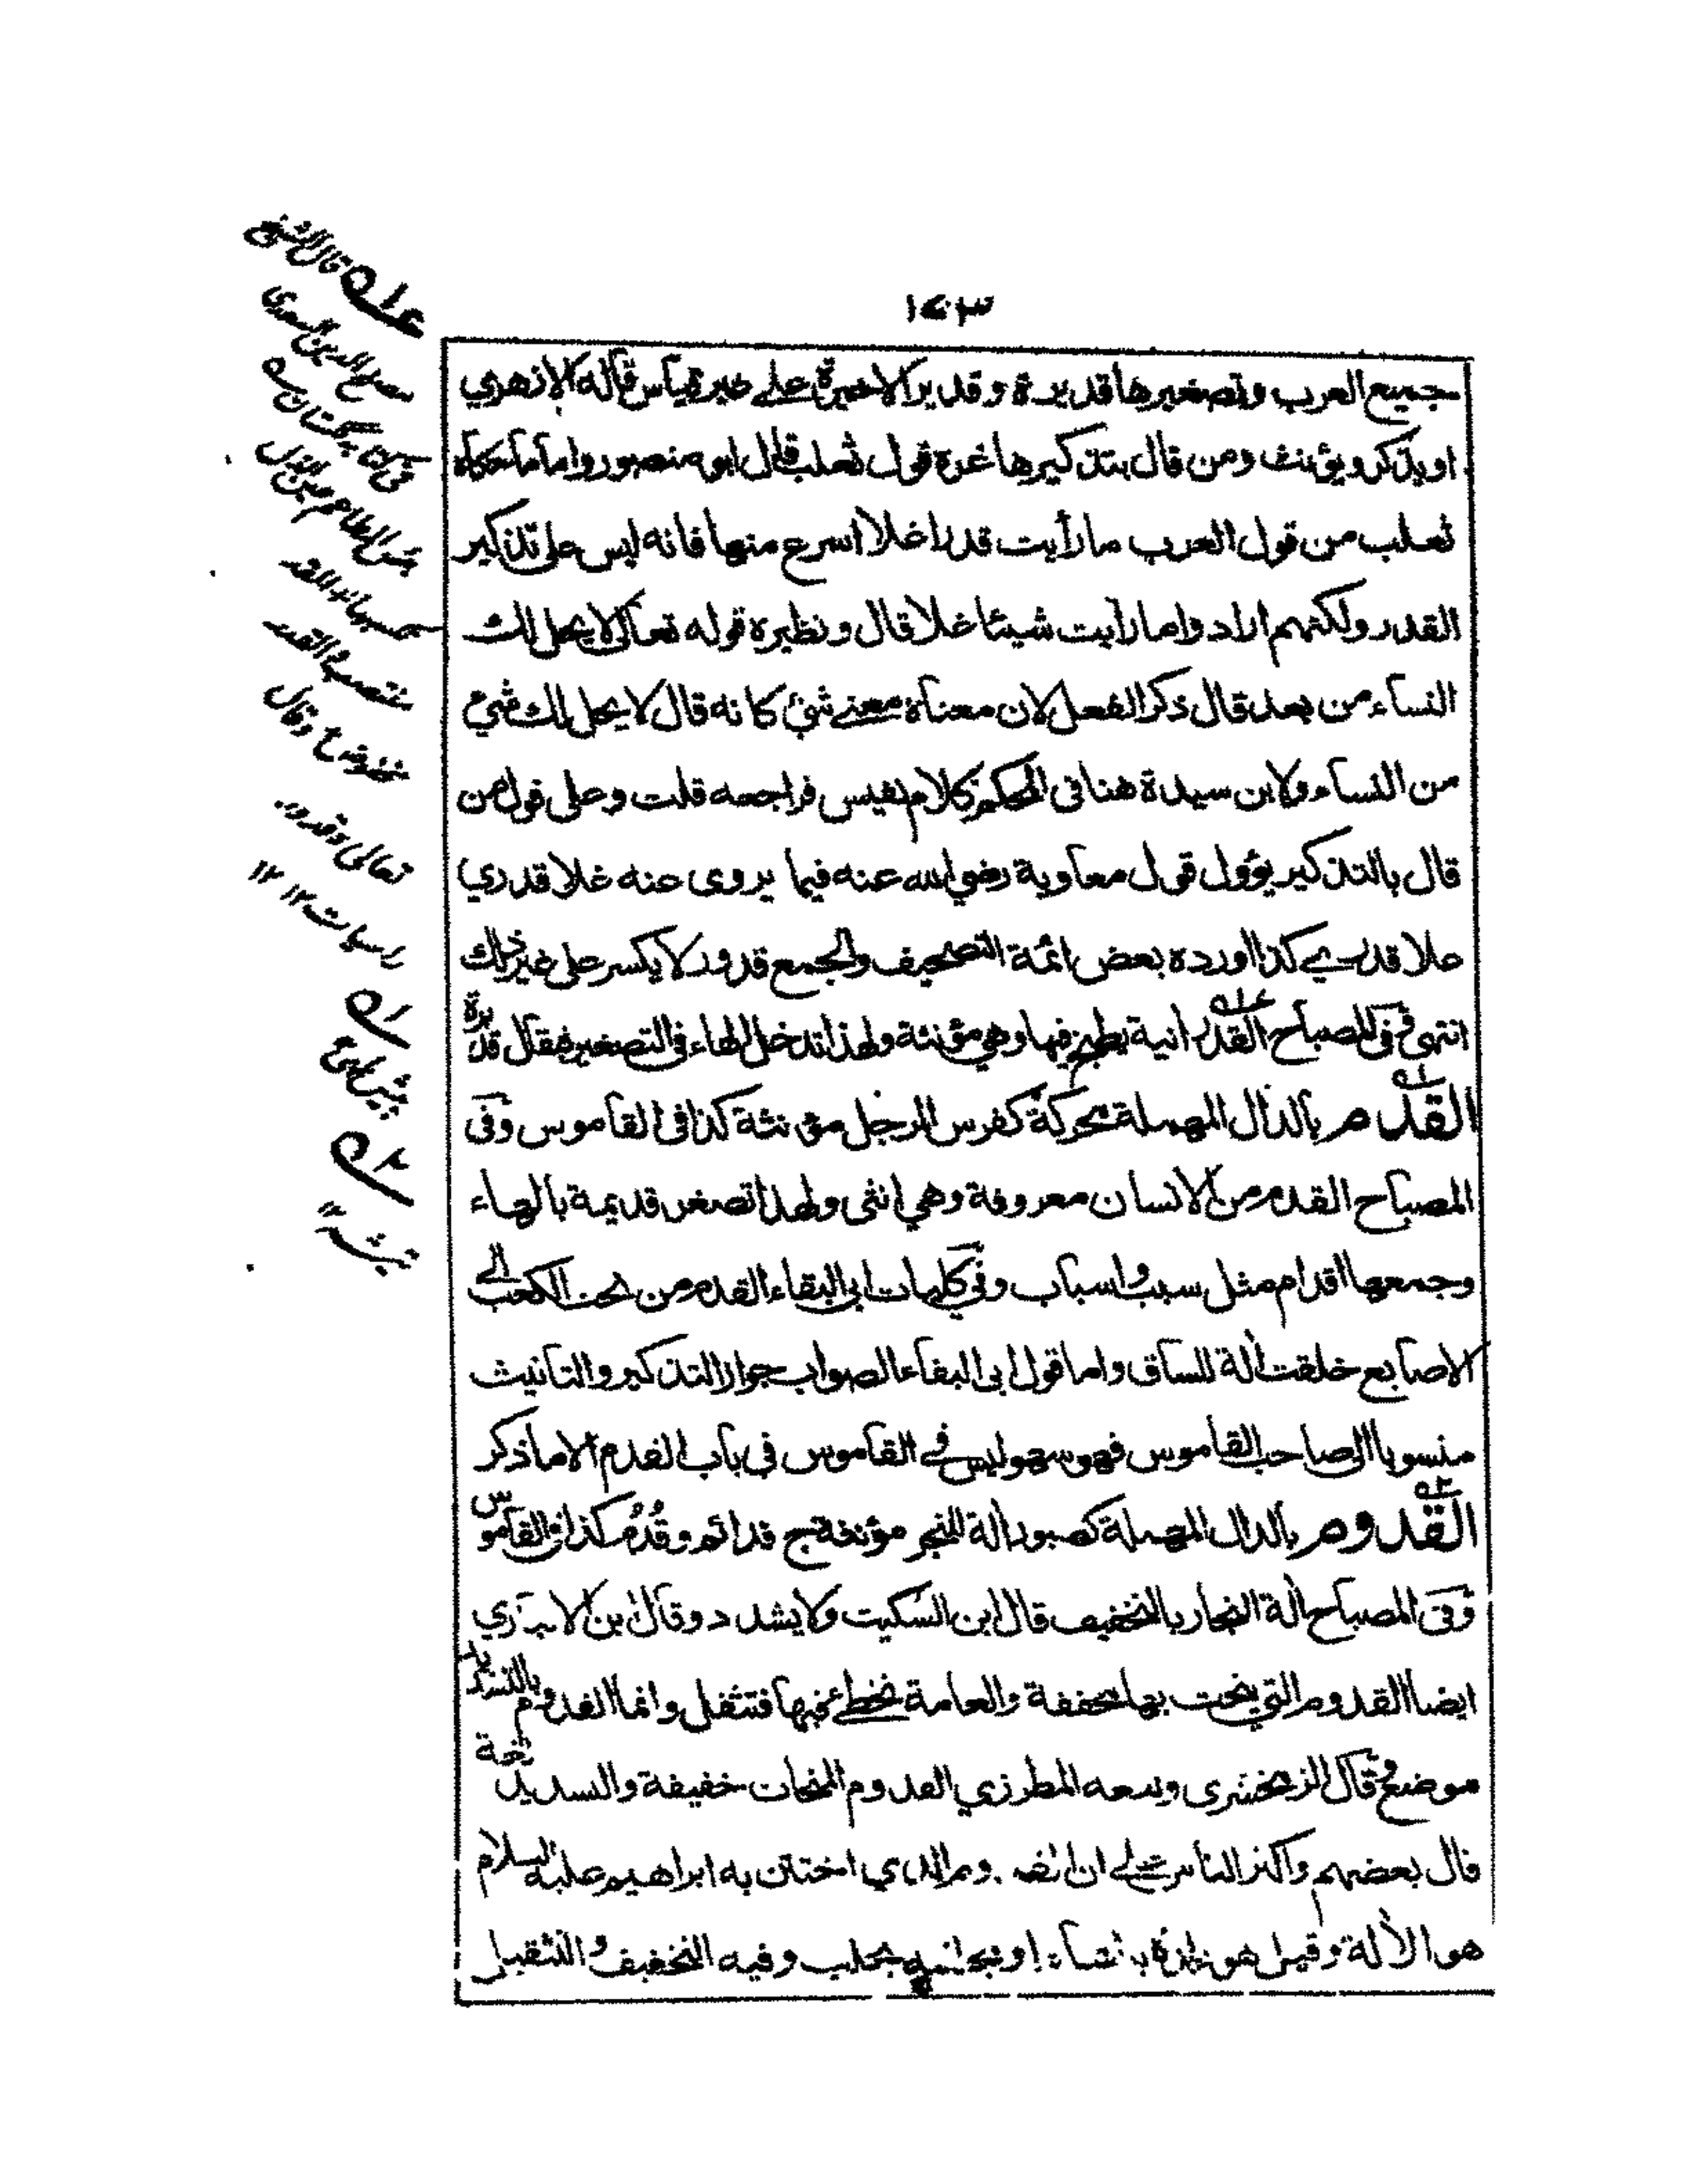 ١٧٣
جميع العرب وتصغيرها قديرة وقدير الاخيرة على غير قياس قاله الازهري
او يذكر ويؤنث ومن قال بتذكيرها غره قول ثعلب قال ابو منصور واما ما حكاه
ثعلب من قول العرب ما رأيت قدرا غلا اسرع منها فانه ليس على تذكير
القدر ولكنهم ارادوا ما رأيت شيئا غلا قال ونظيره قوله تعالى لا يحل لك
النساء من بعد قال ذكر الفعل لان معناه معنى شئ كانه قال لا يحل لك شيء
من النساء ولابن سيدة هنا فى المحكم كلام نفيس فراجعه قلت وعلى قول من
قال بالتذكير يؤول قول معاوية رضي الله عنه فيما يروى عنه غلا قدري
علا قدري كذا اورده بعض ائمة التصحيف والجمع قدور لا يكسر على غير ذلك
انتهى وفى المصباح القدر انية يطبخ فيها وهي مؤنثة ولهذا تدخل الهاء فى التصغير فيقال قديرة
القدم بالدال المهملة محركة كفرس الرجل مؤنثة كذا فى القاموس وفى
المصباح القدم من الانسان معروفة وهي انثى ولهذا تصغر قديمة بالهاء
وجمعها اقدام مثل سبب واسباب وفى كليات ابى البقاء القدم من تحت الكعب الى
الاصابع خلقت الة للساق واما قول ابى البقاء الصواب جواز التذكير والتانيث
منسوبا الى صاحب القاموس فهو سهو ليس فى القاموس فى باب القدم الا ما ذكر
القدوم بالدال المهملة كصبور الة للنجر مؤنثة ج قدائم وقُدُم كذا فى القاموس
وفى المصباح الة النجار بالتخفيف قال ابن السكيت ولا يشدد وقال ابن الانباري
ايضا القدوم التي ينحت بها مخففة والعامة تخطئ فيها فتثقل وانما القدوم بالتشديد
موضع وقال الزمخشرى وتبعه المطرزي القدوم المنحات خفيفة والتشديد لغة
قال بعضهم واكثر الناس على ان القدوم الذي اختتن به ابراهيم عليه السلام
هو الألة وقيل هو بلدة بالشام او بحلب وفيه التخفيف والتثقيل
ع١ه قال الشيخ
مصلح الدين السعدى
فى كتابه گلستان ه
بئس المطاعم حين الذل
تكسبها * القدر
منتصب والقدر
مخفوض وقال
تعالى وقدور
راسيات ١٢ ١٢
ه١
ه٢
تيشه ١٢